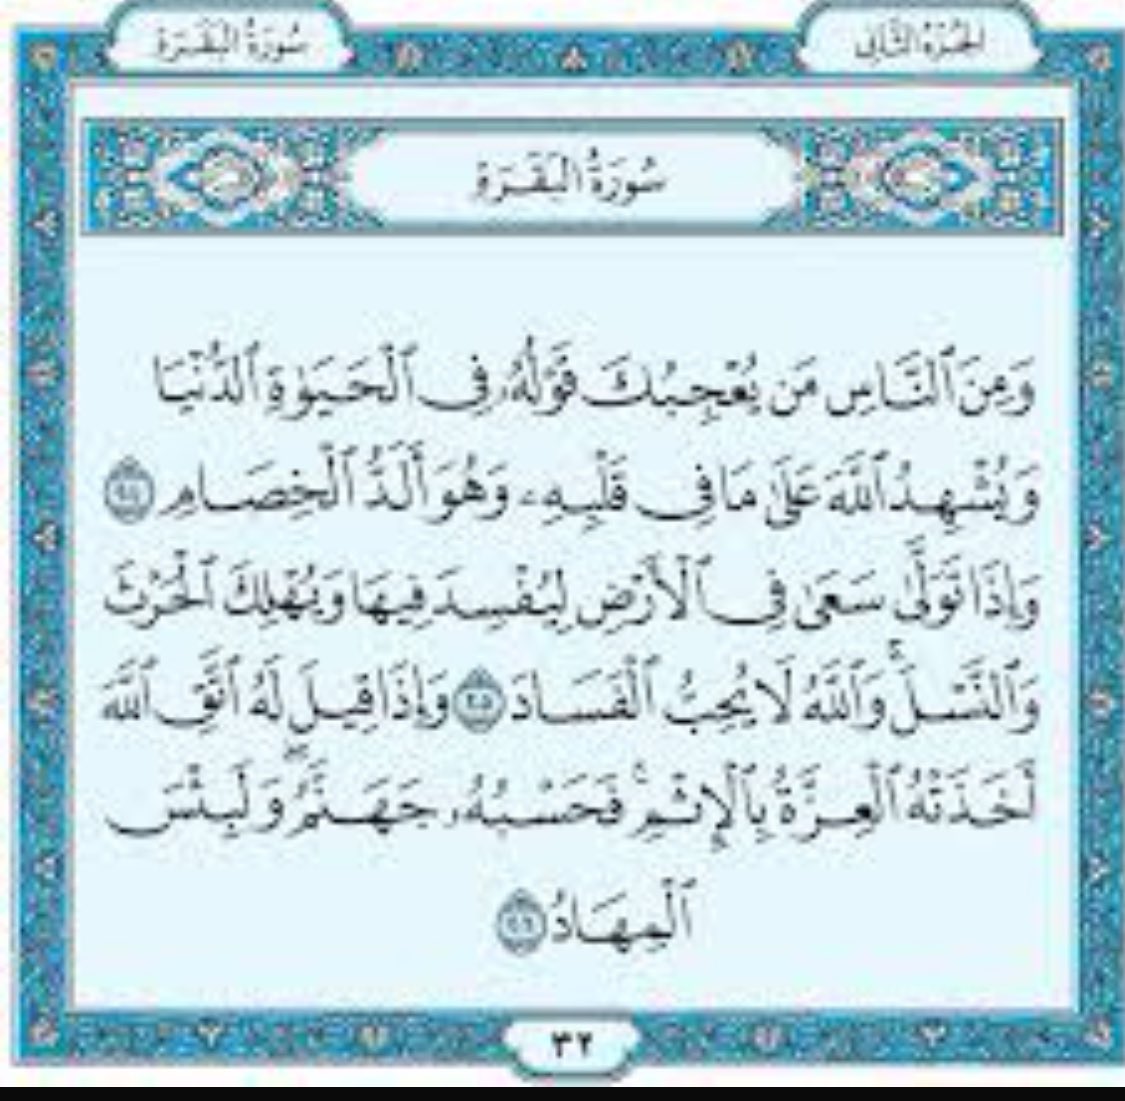 الجزء الثاني
سورة البقرة
سُورَةُ البَقَرَةِ
وَمِنَ ٱلنَّاسِ مَن يُعْجِبُكَ قَوْلُهُۥ فِى ٱلْحَيَوٰةِ ٱلدُّنْيَا
وَيُشْهِدُ ٱللَّهَ عَلَىٰ مَا فِى قَلْبِهِۦ وَهُوَ أَلَدُّ ٱلْخِصَامِ
وَإِذَا تَوَلَّىٰ سَعَىٰ فِى ٱلْأَرْضِ لِيُفْسِدَ فِيهَا وَيُهْلِكَ ٱلْحَرْثَ
وَٱلنَّسْلَ ۚ وَٱللَّهُ لَا يُحِبُّ ٱلْفَسَادَ وَإِذَا قِيلَ لَهُ ٱتَّقِ ٱللَّهَ
أَخَذَتْهُ ٱلْعِزَّةُ بِٱلْإِثْمِ ۚ فَحَسْبُهُۥ جَهَنَّمُ ۖ وَلَبِئْسَ
ٱلْمِهَادُ
٣٢